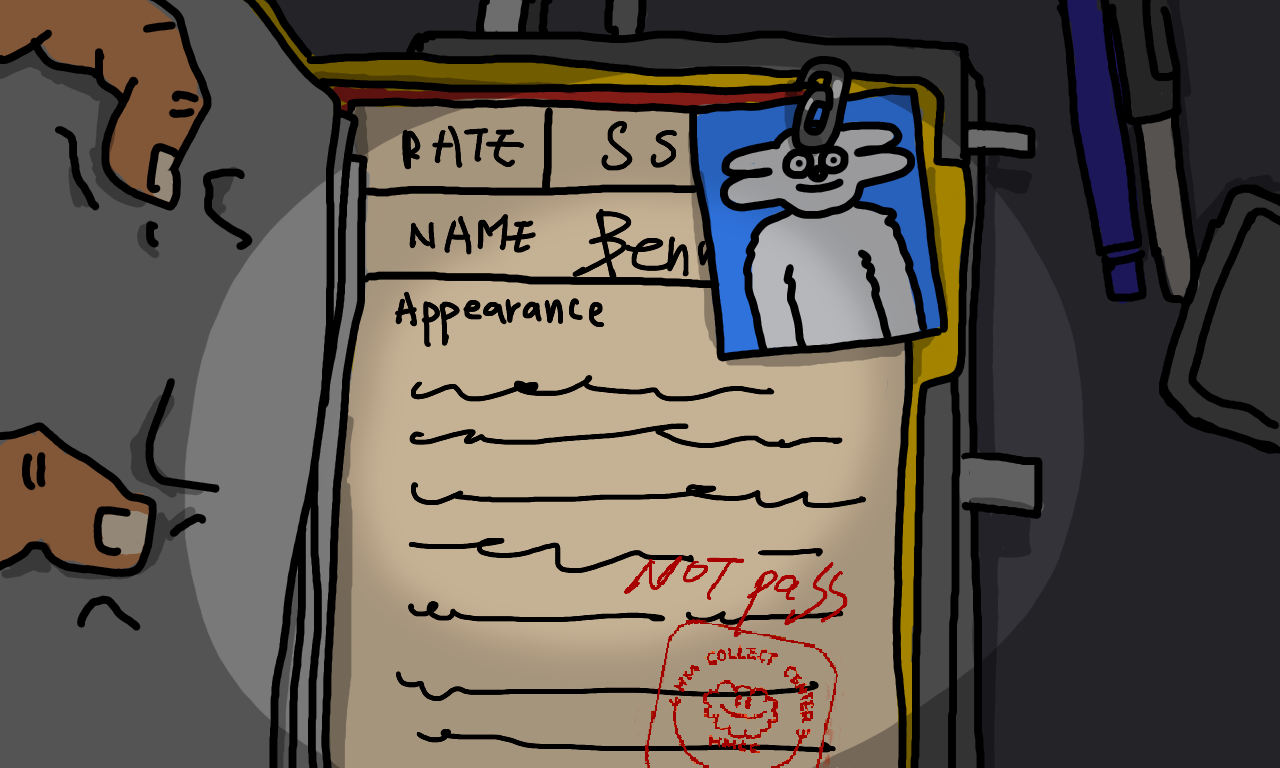 RATE SS
NAME Ben
Appearance
NOT pass
COLLECT CENTER